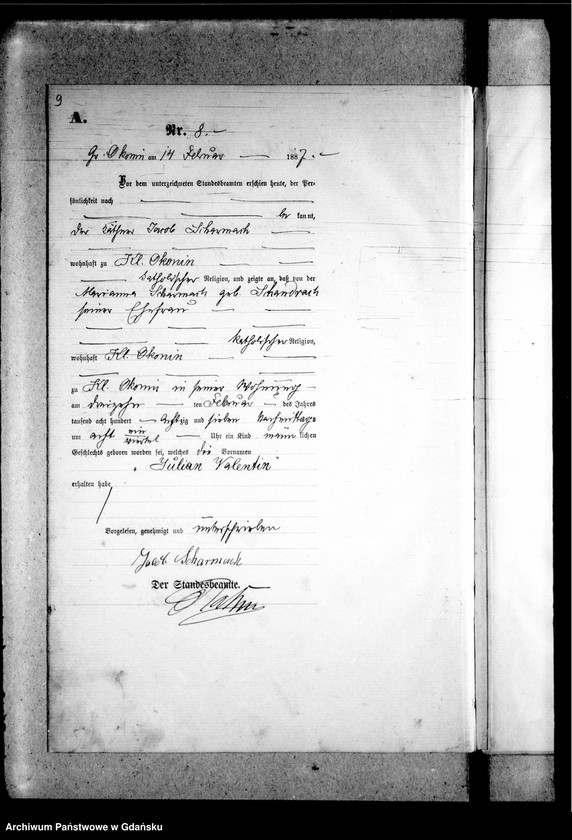 9
A.
Nr. 8.
Gr. Okonin am 14 Februar 1887.
Vor dem unterzeichneten Standesbeamten erschien heute, der Per-
sönlichkeit nach
be kannt,
der Käthner Jacob Scharmach
wohnhaft zu Kl. Okonin
katholischer Religion, und zeigte an, daß von der
Marianna Scharmach geb. Schandrach
seiner Ehefrau
katholischer Religion,
wohnhaft Kl. Okonin
zu Kl. Okonin in seiner Wohnung
am dreizehn ten Februar des Jahres
tausend acht hundert achtzig und sieben Nachmittags
um acht ein viertel Uhr ein Kind männ lichen
Geschlechts geboren worden sei, welches die Vornamen
„Julian Valentin"
erhalten habe
Vorgelesen, genehmigt und unterschrieben
Jacob Scharmach
Der Standesbeamte.
Archiwum Państwowe w Gdańsku